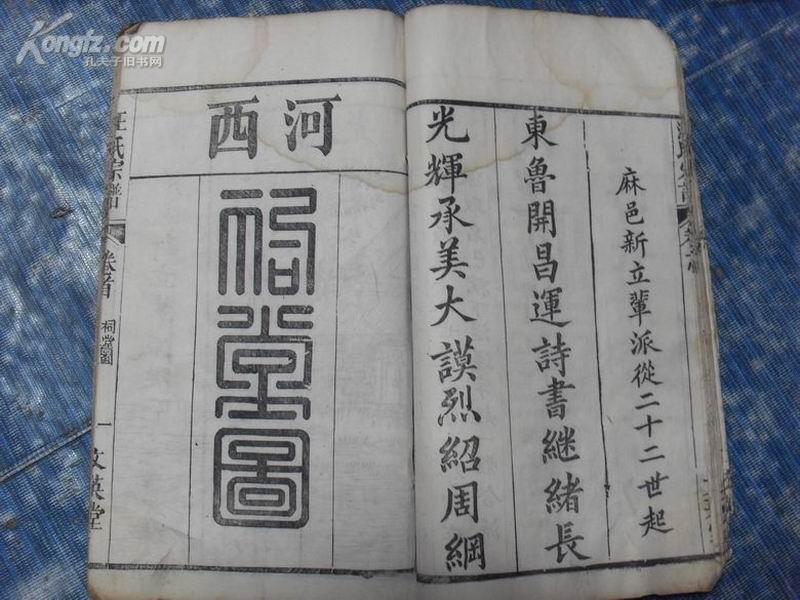 Kongfz.com
孔夫子旧书网
麻邑新立輩派從二十二世起
東魯開昌運詩書継緒長
光輝承美大謨烈紹周綱
河西
祠堂圖
汪氏宗譜
卷首
祠堂圖
一
文英堂